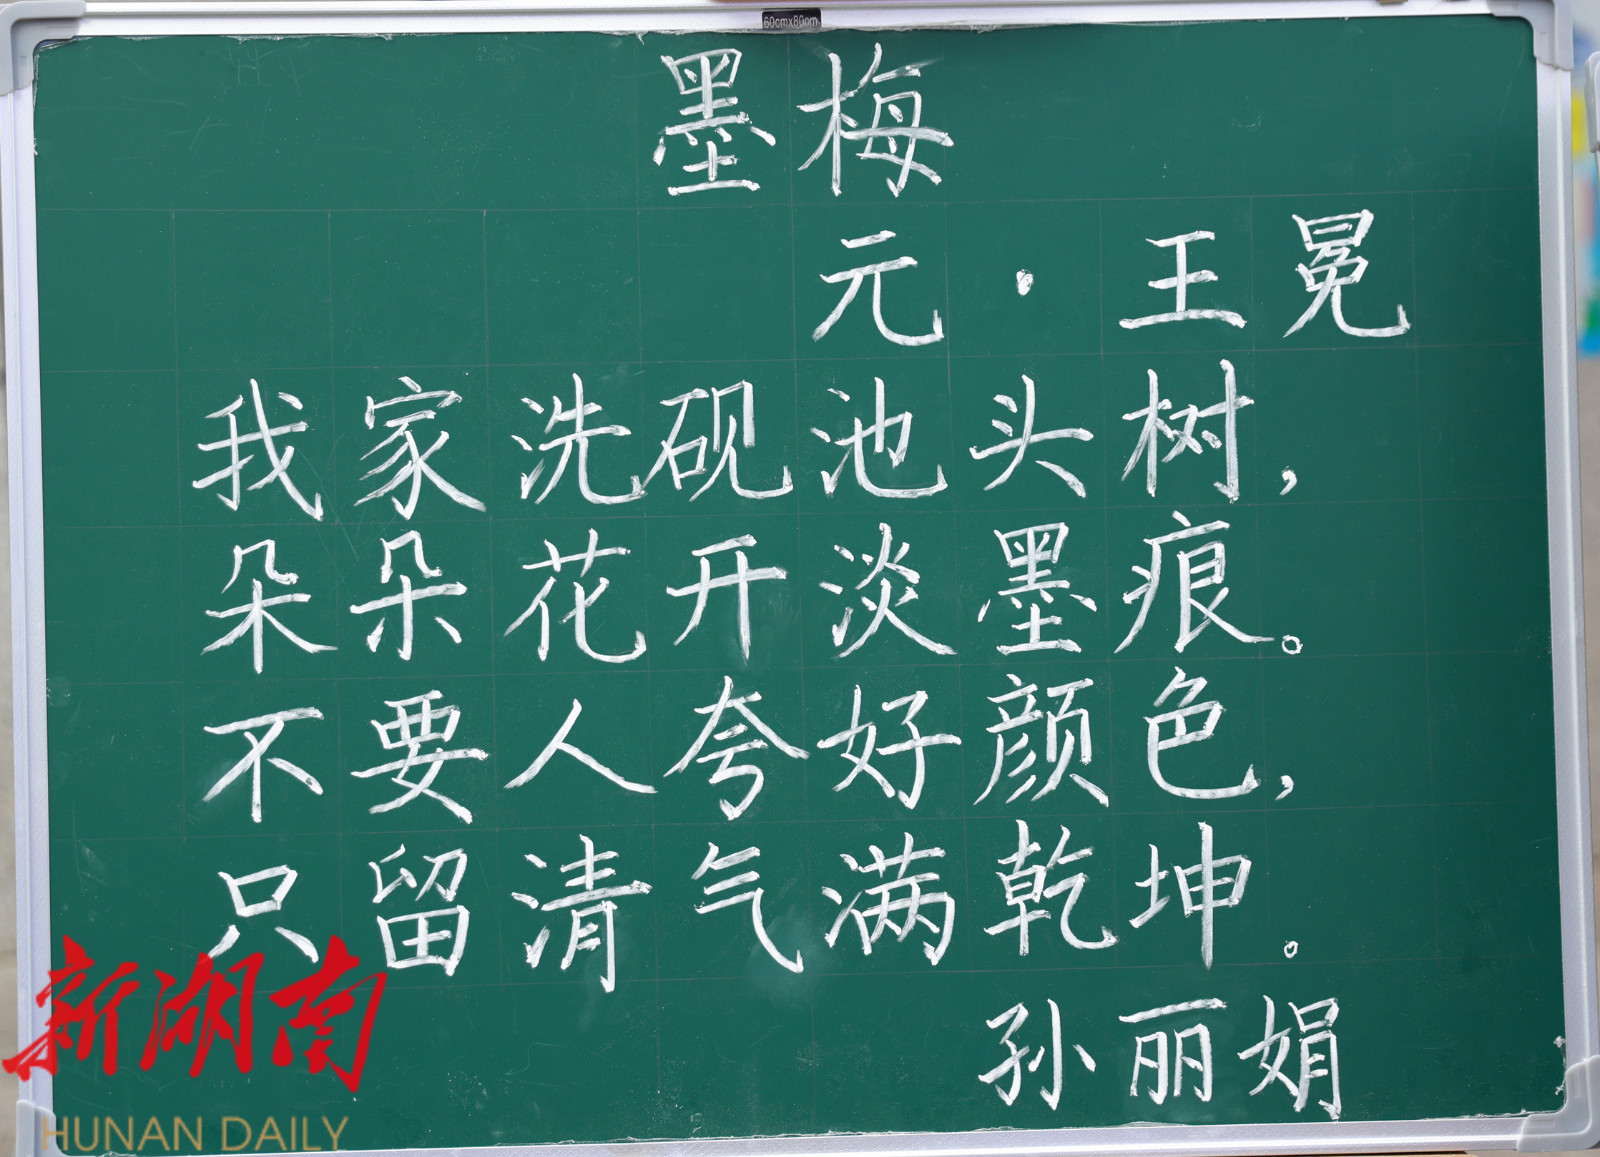 60cmx80cm
墨梅
元·王冕
我家洗砚池头树，
朵朵花开淡墨痕。
不要人夸好颜色，
只留清气满乾坤。
孙丽娟
新湖南
HUNAN DAILY